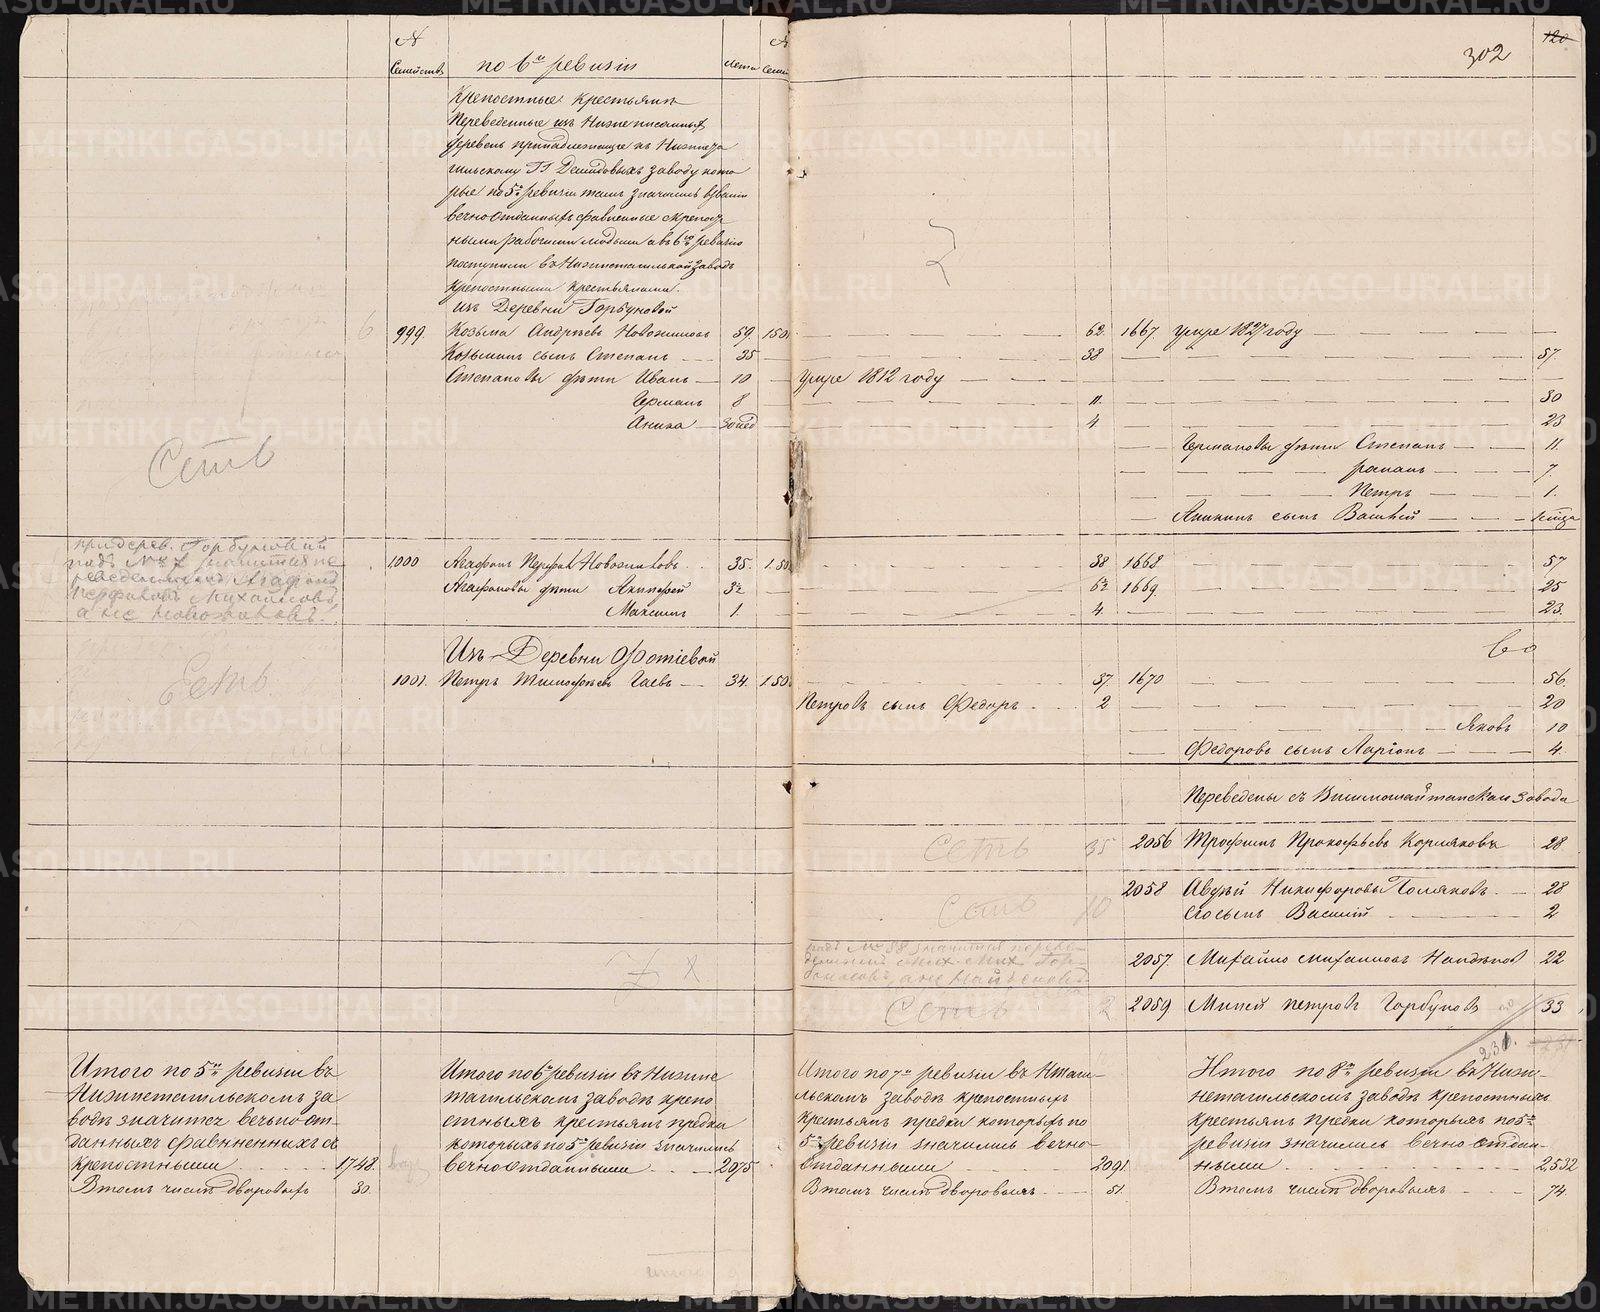 № Семейств
по 6й ревизіи
Лета
№ Семей
302
120
Крепостные крестьяня
переведенные изъ Нижеписанныхъ
деревень принадлежащіе къ Нижнета
гильскому ГГ Демидовыхъ заводу кото
рые по 5й ревизіи тамъ значились
вечноотданныхъ сравненные с крепост
ными рабочими людьми а въ 6ю ревизію
поступили въ Нижнетагильской заводъ
крепостными крестьянами.
Изъ Деревни Горбуновой
6 999. Козьма Андреевъ Новожиловъ 59. 150. 62. 1667. умре 1827 году
Козьминъ сынъ Степанъ 35 38 57.
Степановы дети Иванъ 10 умре 1812 году
Германъ 8 11. 30
Аника 30 нед 4 23
Германовы дети Степанъ 11.
Романъ 7
Петръ 1.
Аникинъ сынъ Василій
Есть
при дерев. Горбуновой
подъ № 27 значится пе
реведеннымъ Агафонъ
Перфиловъ Михайловъ,
а не Новожиловъ.
1000 Агафонъ Перфил Новожиловъ 35. 150 38 1668 57
Агафоновы дети Акинфей 3½ 6½ 1669. 25
Максимъ 1. 4 23.
Изъ Деревни Фотіевой
Есть
1001. Петръ Тимофеевъ Гаевъ 34. 150. 37 1670 56.
Петровъ сынъ Федоръ 2 20
Яковъ 10
Федоровъ сынъ Ларіонъ 4.
Переведены съ Висимошайтанскаго завода
Есть 35 2056 Трофимъ Прокофьевъ Корляковъ 28
Есть 10 2058 Авдей Никифоровъ Поляковъ 28
Его сынъ Василій 2
подъ № 88 значится переве
деннымъ Мих. Мих. Гор
2057. Михайло Михайловъ 22
Есть 2 2059 Миней Петровъ Горбуновъ 33
231.
Итого по 5й ревизіи въ
Нижнетагильскомъ за
воде значится вечно от
данныхъ сравненныхъ съ
крепостными 1748.
Втомъ числе дворовыхъ 30.
Итого по 6й ревизіи въ Нижне
тагильскомъ заводе крепо
стныхъ крестьянъ предки
которыхъ по 5й ревизіи значились
вечноотданными 2075
Итого по 7й ревизіи въ Нтаги
льскомъ заводе крепостныхъ
крестьянъ предки которыхъ по
5й ревизіи значились вечно
отданными 2091
Втомъ числе дворовыхъ 51.
Итого по 8й ревизіи въ Ниж
нетагильскомъ заводе крепостныхъ
крестьянъ предки которыхъ по 5й
ревизіи значились вечно отдан
ными 2,532
Втомъ числе дворовыхъ 74.
METRIKI.GASO-URAL.RU